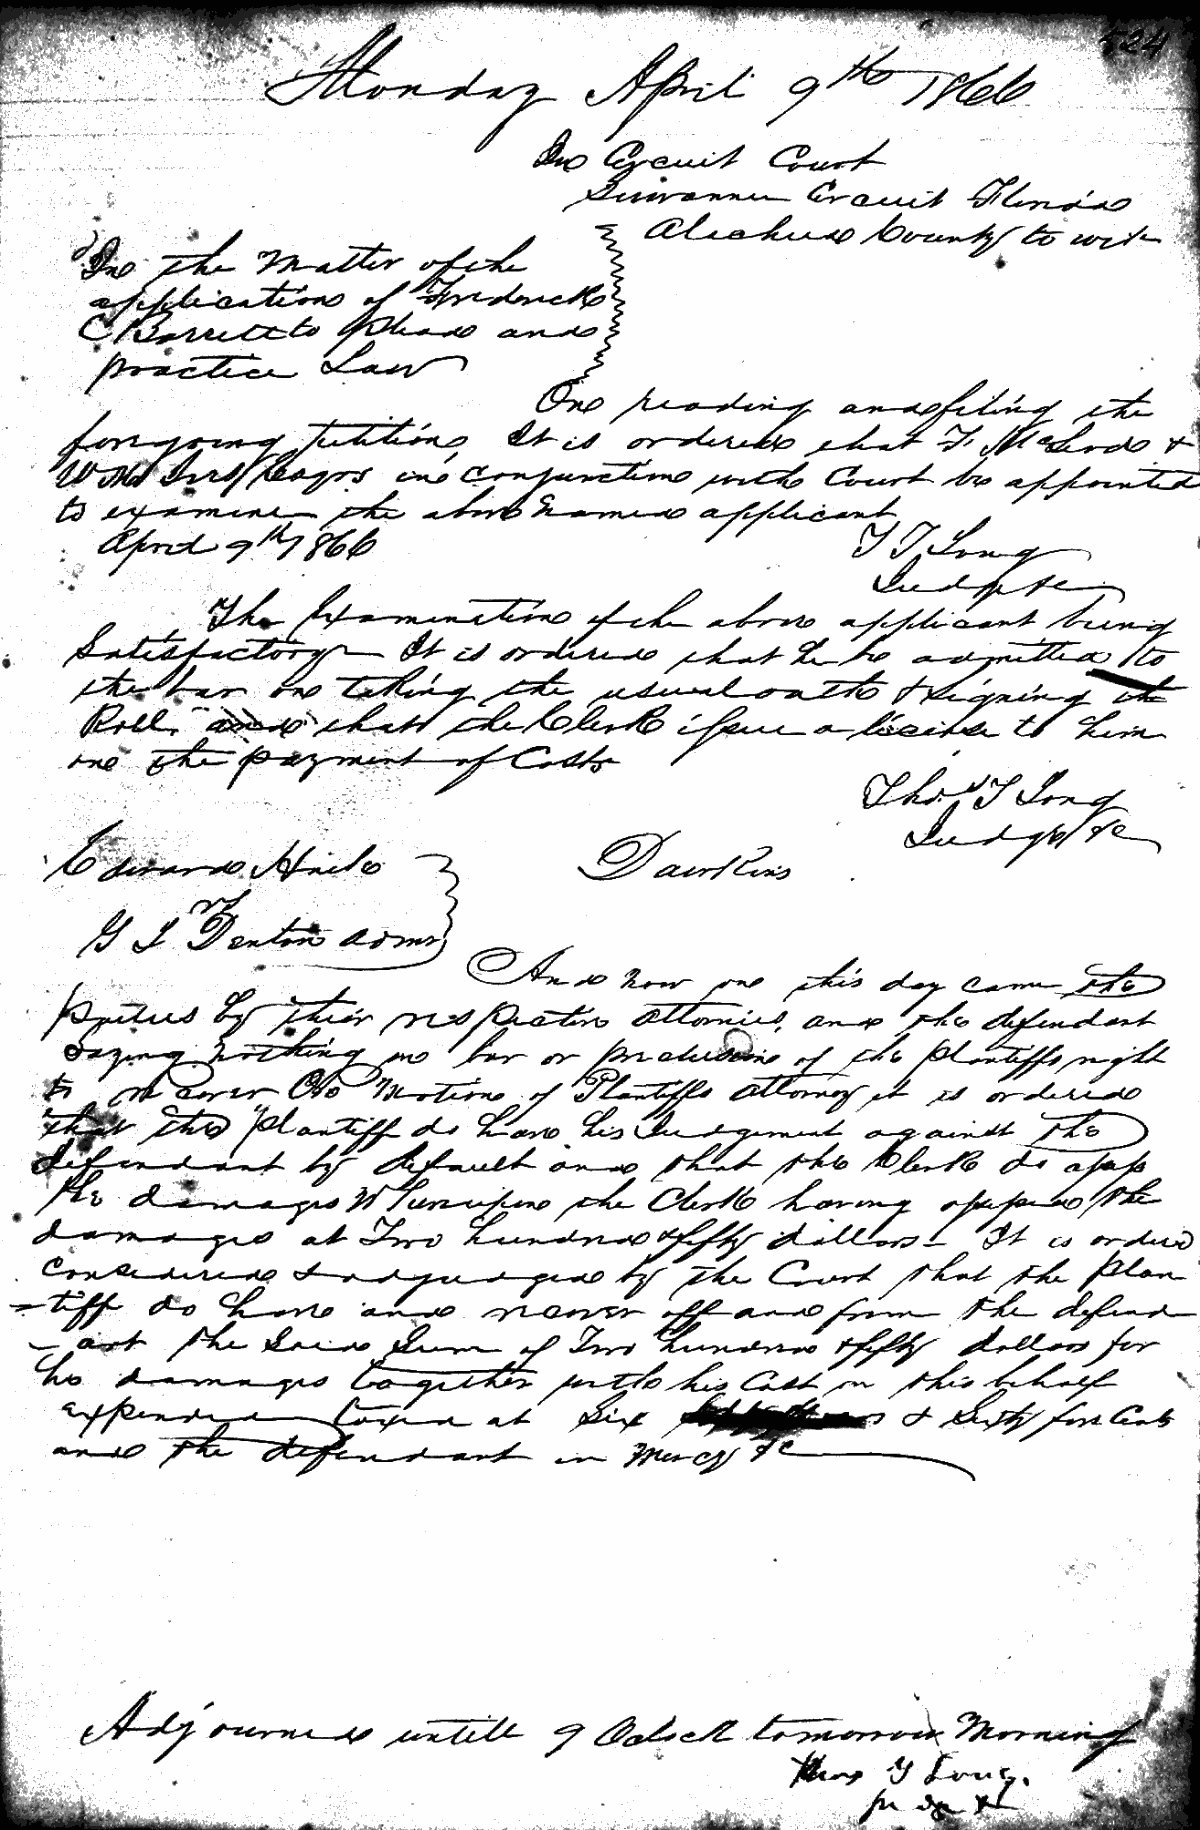 524
Monday April 9th 1866
In Circuit Court
Suwannee Circuit Florida
Alachua County to wit
In the Matter of the
application of Frederick
C Barrett to plead and
practice Law
On reading and filing the
foregoing petition, It is ordered that F. McLeod &
in conjunction with Court be appointed
to examine the above named applicant
April 9th 1866
T T Long
Judge &c
The Examination of the above applicant being
Satisfactory It is ordered that he be admitted to
the bar on taking the usual oath & signing the
Roll. and that the Clerk issue a licinse to him
on the payment of Costs
Thos T Long
Judge &c
Edward Haile
vs
G L Denton Admr
Dawkins
And now on this day came the
parties by their respective attornies, and the defendant
saying nothing in bar or preclusion of the plantiffs right
to recover On Motion of Plantiffs attorney it is ordered
that the plantiff do have his Judgement against the
defendant by default and that the Clerk do assess
the damages Whereupon the Clerk having assessed the
damages at Two hundred & fifty dollars - It is ordered
considered & adjudged by the Court that the plan
-tiff do have and recover off and from the defend
-ant the Said Sum of Two hundred & fifty dollars for
his damages together with his Cost in this behalf
expended taxed at Six & Sixty five Cents
and the defendant in mercy &c
Adjourned untill 9 Oclock tomorrow Morning
Thos T Long.
Judge &c